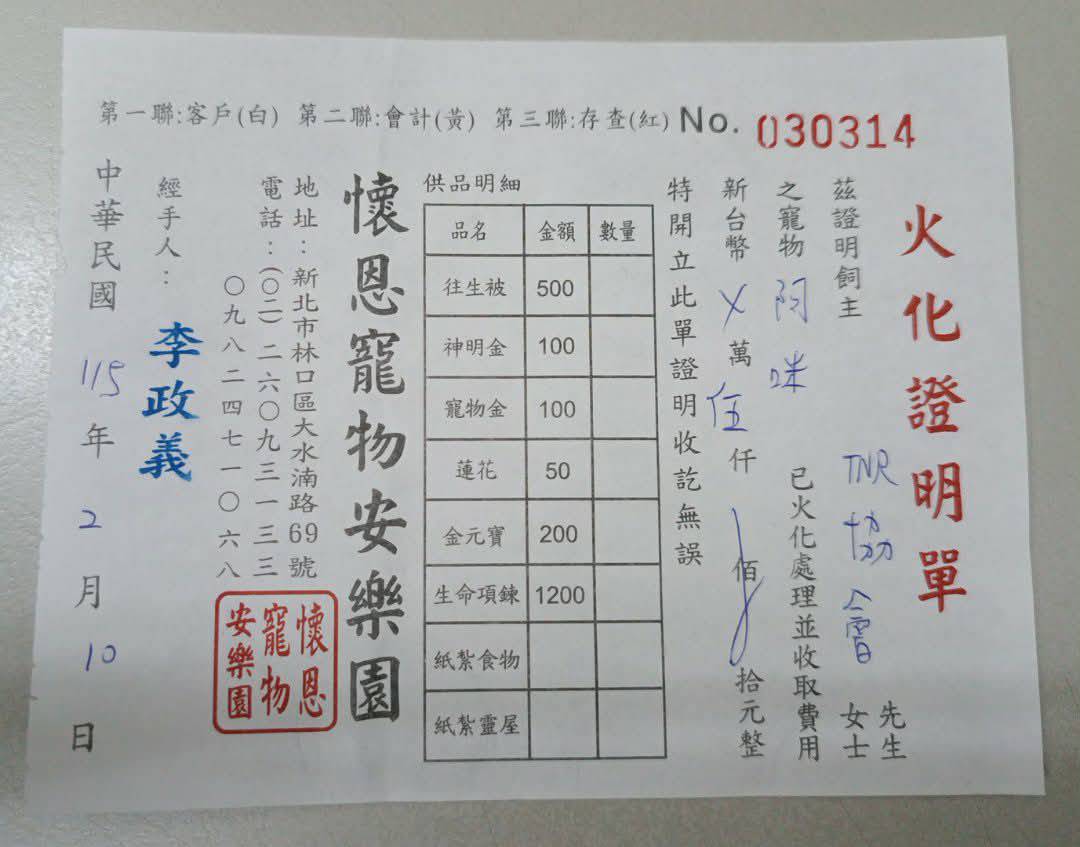 第一聯:客戶(白) 第二聯:會計(黃) 第三聯:存查(紅) No. 030314
火化證明單
茲證明飼主 TNR協會 先生女士
之寵物 阿咪 已火化處理並收取費用
新台幣 X 萬 伍 仟 佰 拾元整
特開立此單證明收訖無誤
供品明細
品名 金額 數量
往生被 500
神明金 100
寵物金 100
蓮花 50
金元寶 200
生命項鍊 1200
紙紮食物
紙紮靈屋
懷恩寵物安樂園
地址:新北市林口區大水湳路69號
電話:(〇二)二六〇九三一三三
〇九八二四七一〇六八
懷恩寵物安樂園
經手人: 李政義
中華民國 115 年 2 月 10 日